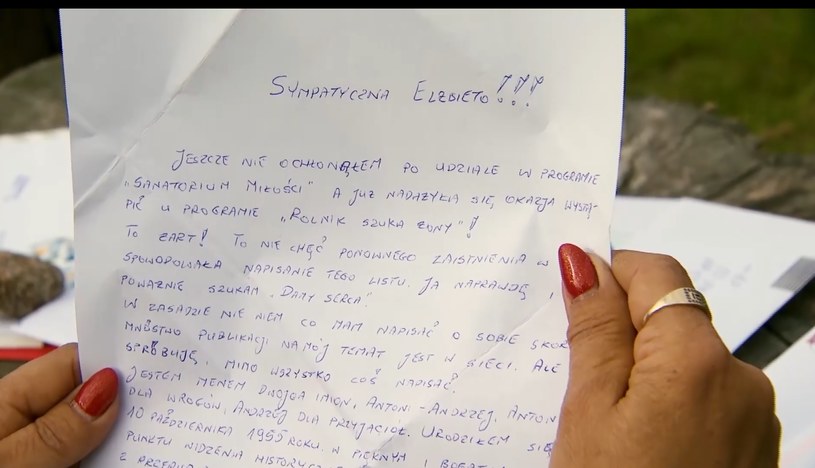 SYMPATYCZNA ELŻBIETO!!!
JESZCZE NIE OCHŁONĄŁEM PO UDZIALE W PROGRAMIE
„SANATORIUM MIŁOŚCI" A JUŻ NADAŻYŁA SIĘ OKAZJA WYSTĄ-
PIĆ W PROGRAMIE „ROLNIK SZUKA ŻONY"!
TO ŻART! TO NIE CHĘĆ PONOWNEGO ZAISTNIENIA W
SPOWODOWAŁA NAPISANIE TEGO LISTU. JA NAPRAWDĘ,
POWAŻNIE SZUKAM „DAMY SERCA".
W ZASADZIE NIE WIEM CO MAM NAPISAĆ O SOBIE SKOR
MNÓSTWO PUBLIKACJI NA MÓJ TEMAT JEST W SIECI. ALE
SPRÓBUJĘ, MIMO WSZYSTKO COŚ NAPISAĆ.
JESTEM MENEM DWOJGA IMION, ANTONI-ANDRZEJ. ANTONI
DLA WROGÓW, ANDRZEJ DLA PRZYJACIÓŁ. URODZIŁEM SIĘ
10 PAŹDZIERNIKA 1955 ROKU. W PIĘKNYM I
PUNKTU WIDZENIA